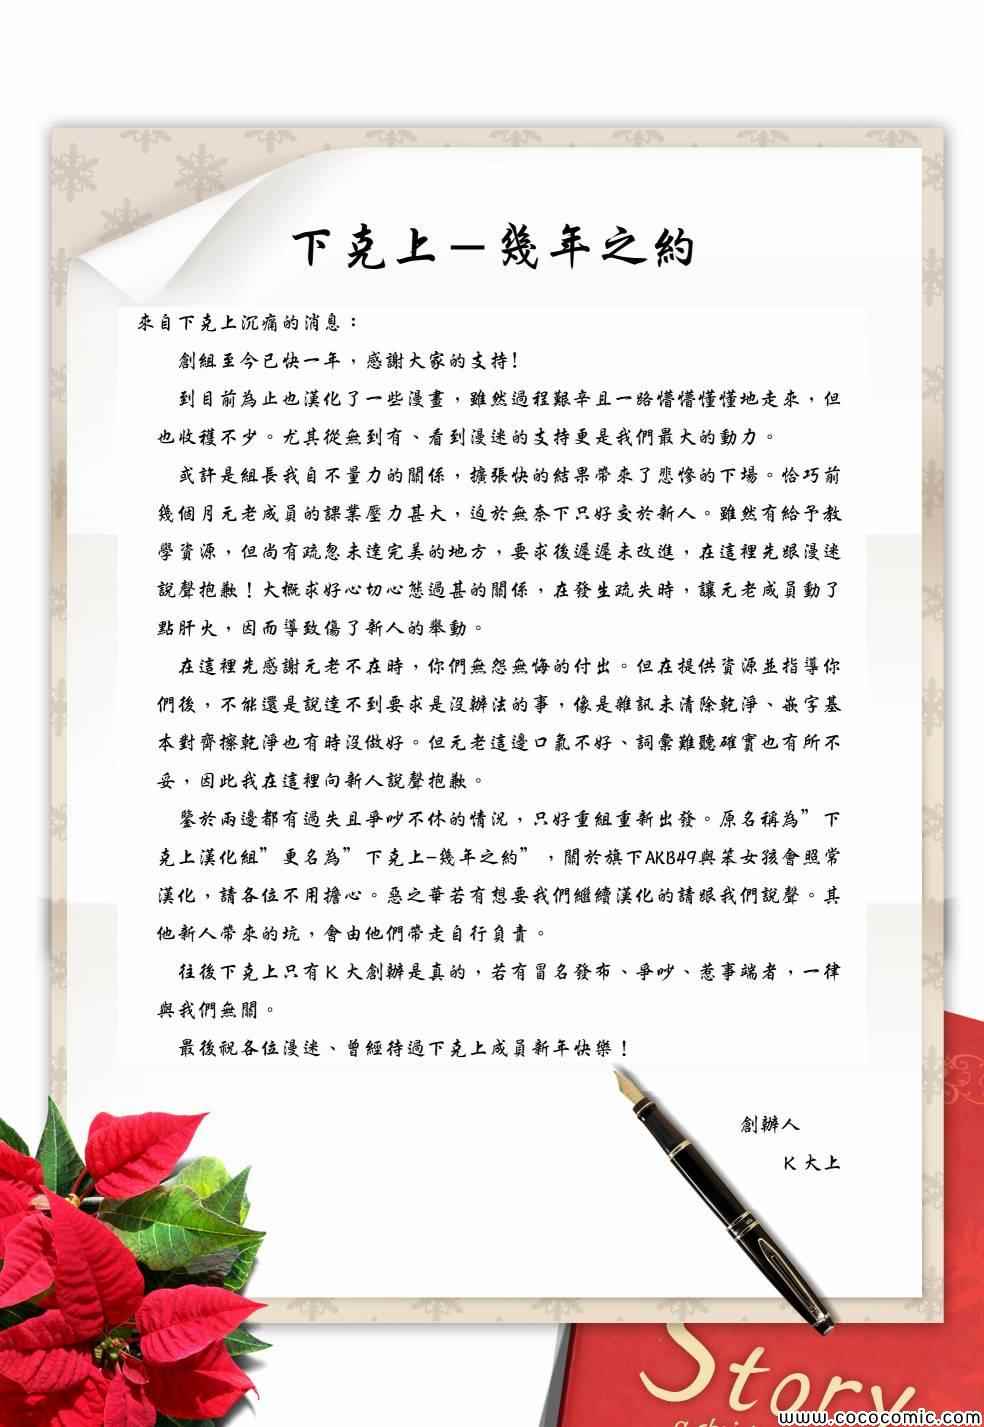 下克上－幾年之約
來自下克上沉痛的消息：
創組至今已快一年，感謝大家的支持！
到目前為止也漢化了一些漫畫，雖然過程艱辛且一路懵懵懂懂地走來，但
也收穫不少。尤其從無到有、看到漫迷的支持更是我們最大的動力。
或許是組長我自不量力的關係，擴張快的結果帶來了悲慘的下場。恰巧前
幾個月元老成員的課業壓力甚大，迫於無奈下只好交於新人。雖然有給予教
學資源，但尚有疏忽未達完美的地方，要求後遲遲未改進，在這裡先跟漫迷
說聲抱歉！大概求好心切心態過甚的關係，在發生疏失時，讓元老成員動了
點肝火，因而導致傷了新人的舉動。
在這裡先感謝元老不在時，你們無怨無悔的付出。但在提供資源並指導你
們後，不能還是說達不到要求是沒辦法的事，像是雜訊未清除乾淨、嵌字基
本對齊擦乾淨也有時沒做好。但元老這邊口氣不好、詞彙難聽確實也有所不
妥，因此我在這裡向新人說聲抱歉。
鑒於兩邊都有過失且爭吵不休的情況，只好重組重新出發。原名稱為”下
克上漢化組”更名為”下克上-幾年之約”，關於旗下AKB49與笨女孩會照常
漢化，請各位不用擔心。惡之華若有想要我們繼續漢化的請跟我們說聲。其
他新人帶來的坑，會由他們帶走自行負責。
往後下克上只有K大創辦是真的，若有冒名發布、爭吵、惹事端者，一律
與我們無關。
最後祝各位漫迷、曾經待過下克上成員新年快樂！
創辦人
K大上
Story
www.cococomic.com